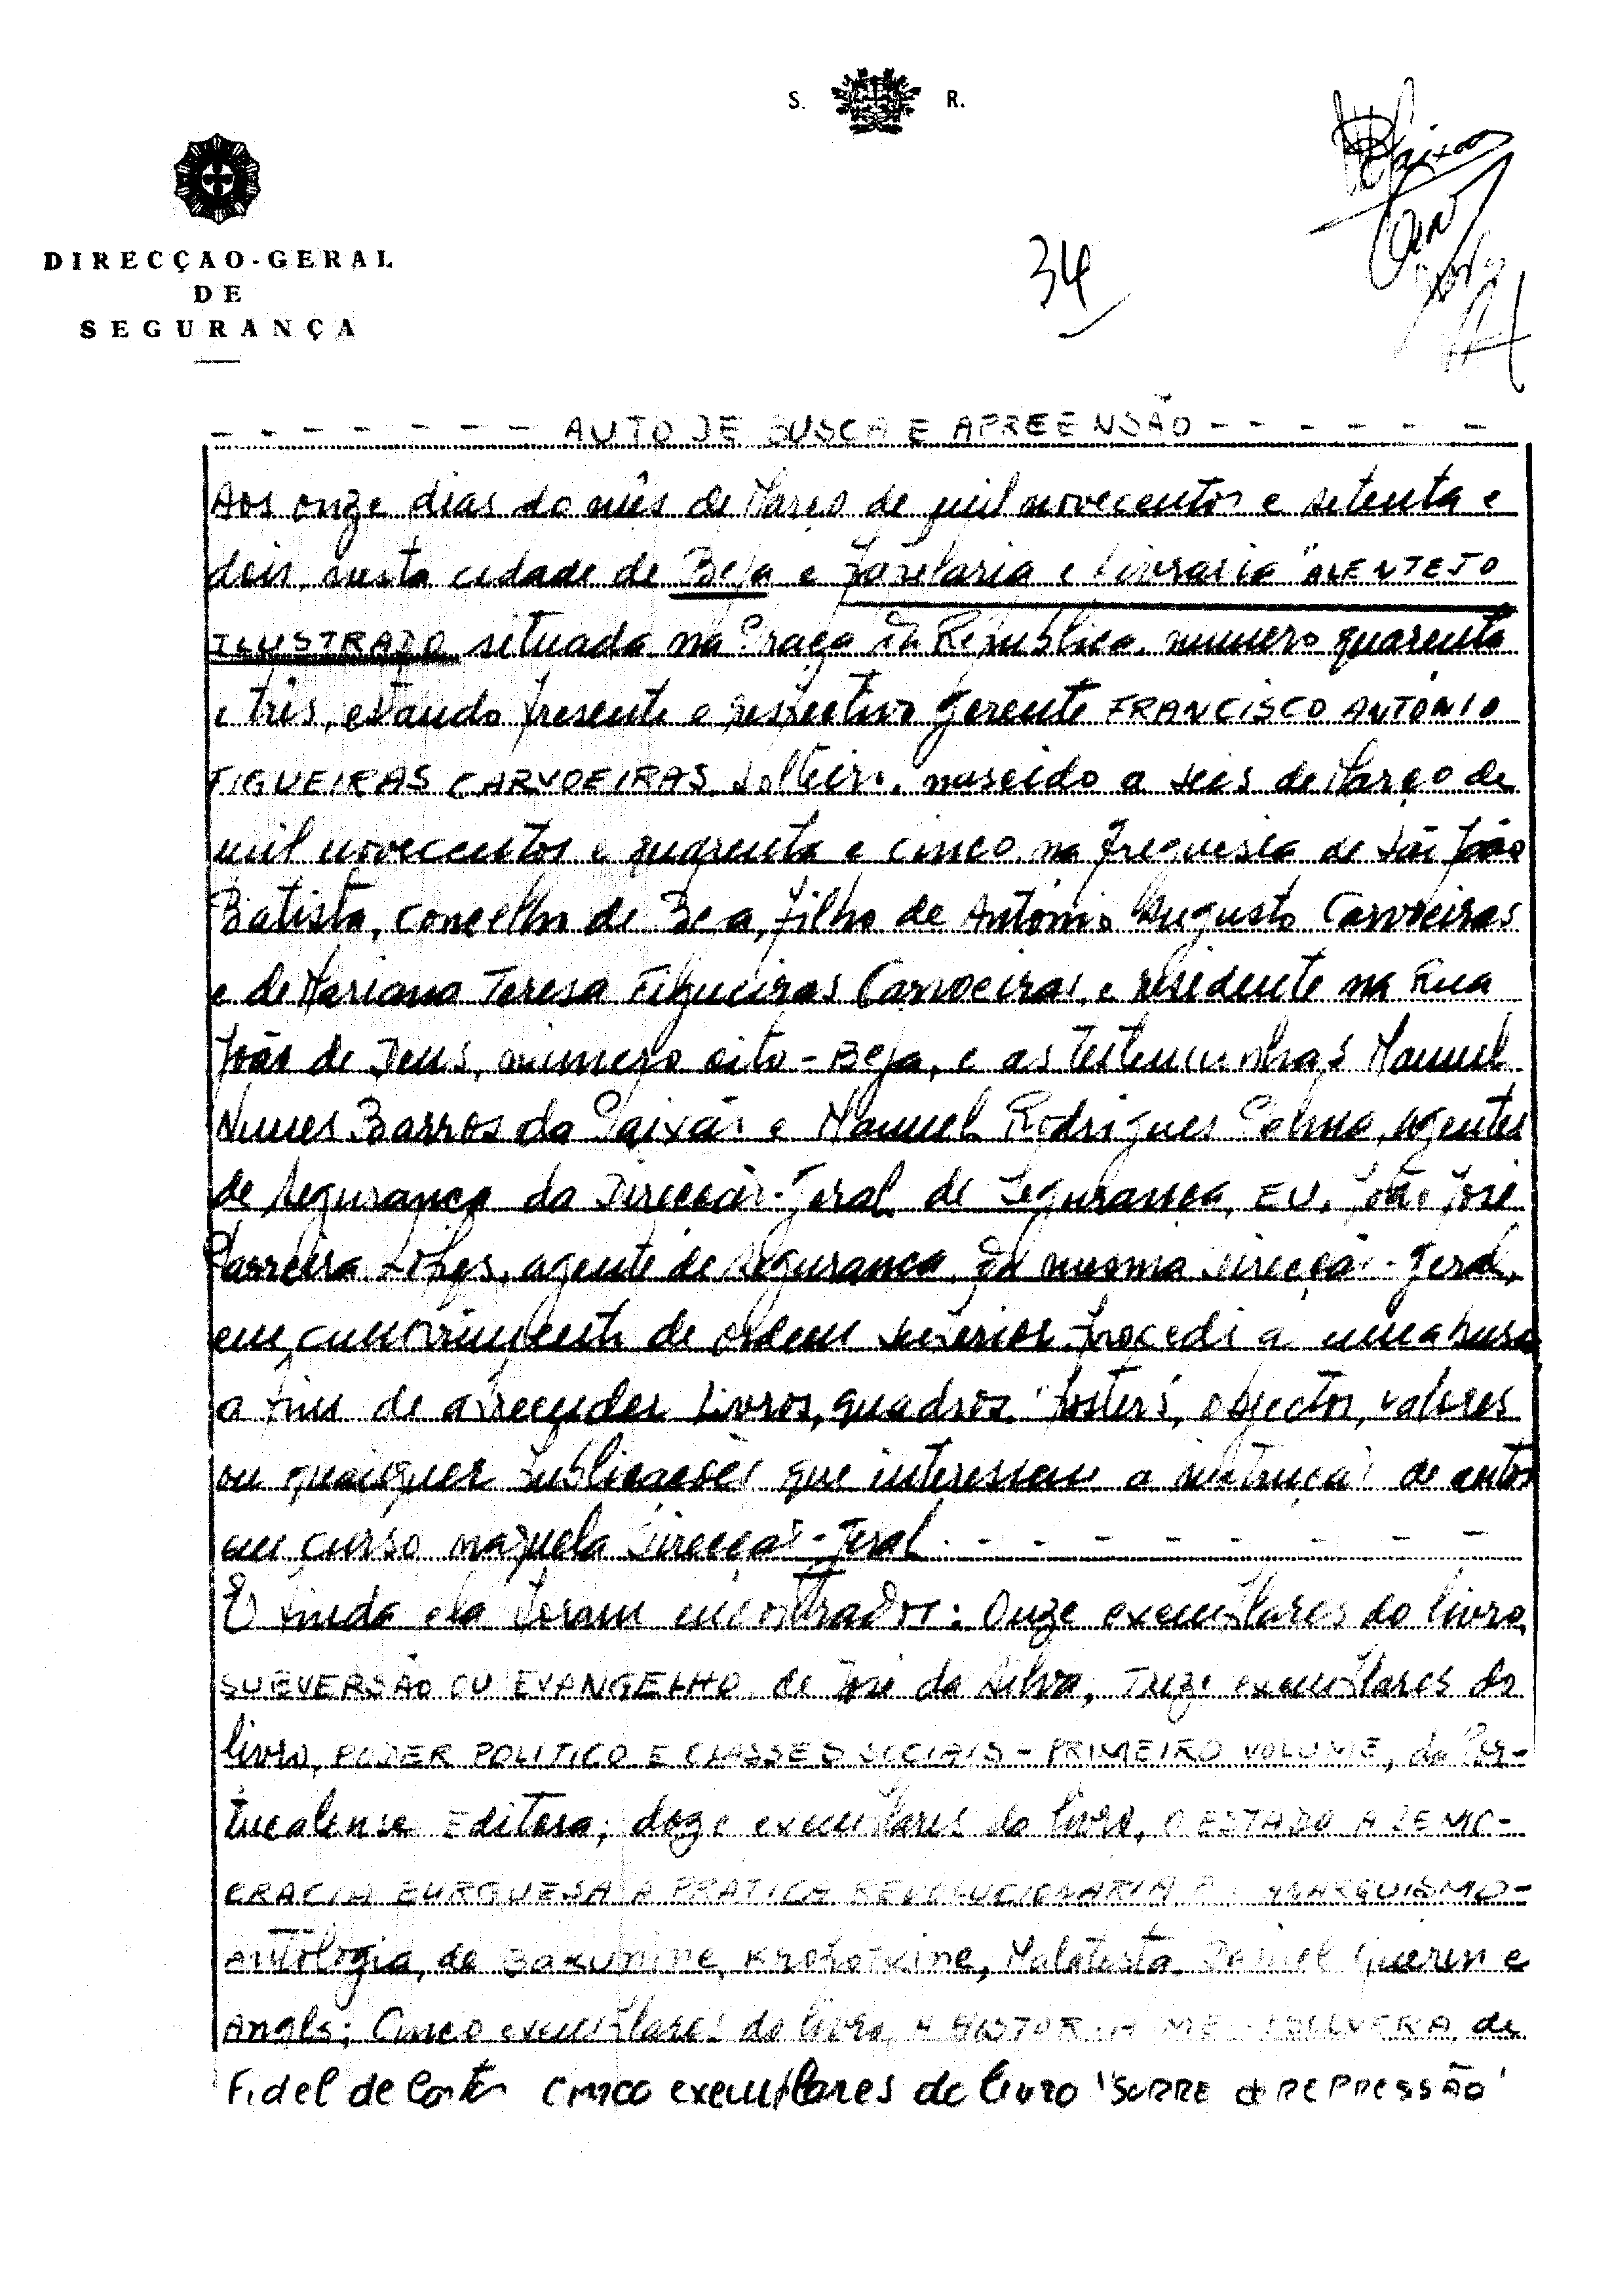 S. R.
DIRECÇÃO-GERAL
DE
SEGURANÇA
34
- - - - - - - AUTO DE BUSCA E APREENSÃO - - - - - -
Aos onze dias do mês de Março de mil novecentos e setenta e
dois, nesta cidade de Beja e Papelaria e Livraria "ALENTEJO
ILUSTRADO situada na Praça da República, número quarenta
e três, estando presente o respectivo gerente FRANCISCO ANTÓNIO
FIGUEIRAS CARVOEIRAS, solteiro, nascido a seis de Março de
mil novecentos e quarenta e cinco, na freguesia de São João
Batista, concelho de Beja, filho de António Augusto Carvoeiras
e de Mariana Teresa Figueiras Carvoeiras, e residente na Rua
João de Deus, número oito - Beja, e as testemunhas Manuel
Nunes Barros da Paixão e Manuel Rodrigues Palma, agentes
de segurança da Direcção-Geral de Segurança, EU, João José
Parreira Lopes, agente de segurança da mesma Direcção-Geral,
em cumprimento de ordem superior, procedi a uma busca
a fim de apreender livros, quadros, "posters", objectos, valores
ou quaisquer publicações que interessem a instrução de autos
em curso naquela Direcção-Geral. - - - - - - - -
E finda ela foram encontrados: Onze exemplares do livro,
SUBVERSÃO OU EVANGELHO, de José da Silva; Treze exemplares do
livro, PODER POLITICO E CLASSES SOCIAIS - PRIMEIRO VOLUME, da Por-
tucalense Editora; doze exemplares do livro, O ESTADO A DEMO-
CRACIA BURGUESA A PRATICA REVOLUCIONARIA ANARQUISMO -
Antologia, de Bakunine, Kropotkine, Malatesta, Daniel Guerin e
; Cinco exemplares do livro, A HISTORIA ME ABSOLVERA, de
Fidel de Castro Cinco exemplares do livro "SOBRE a REPRESSÃO"